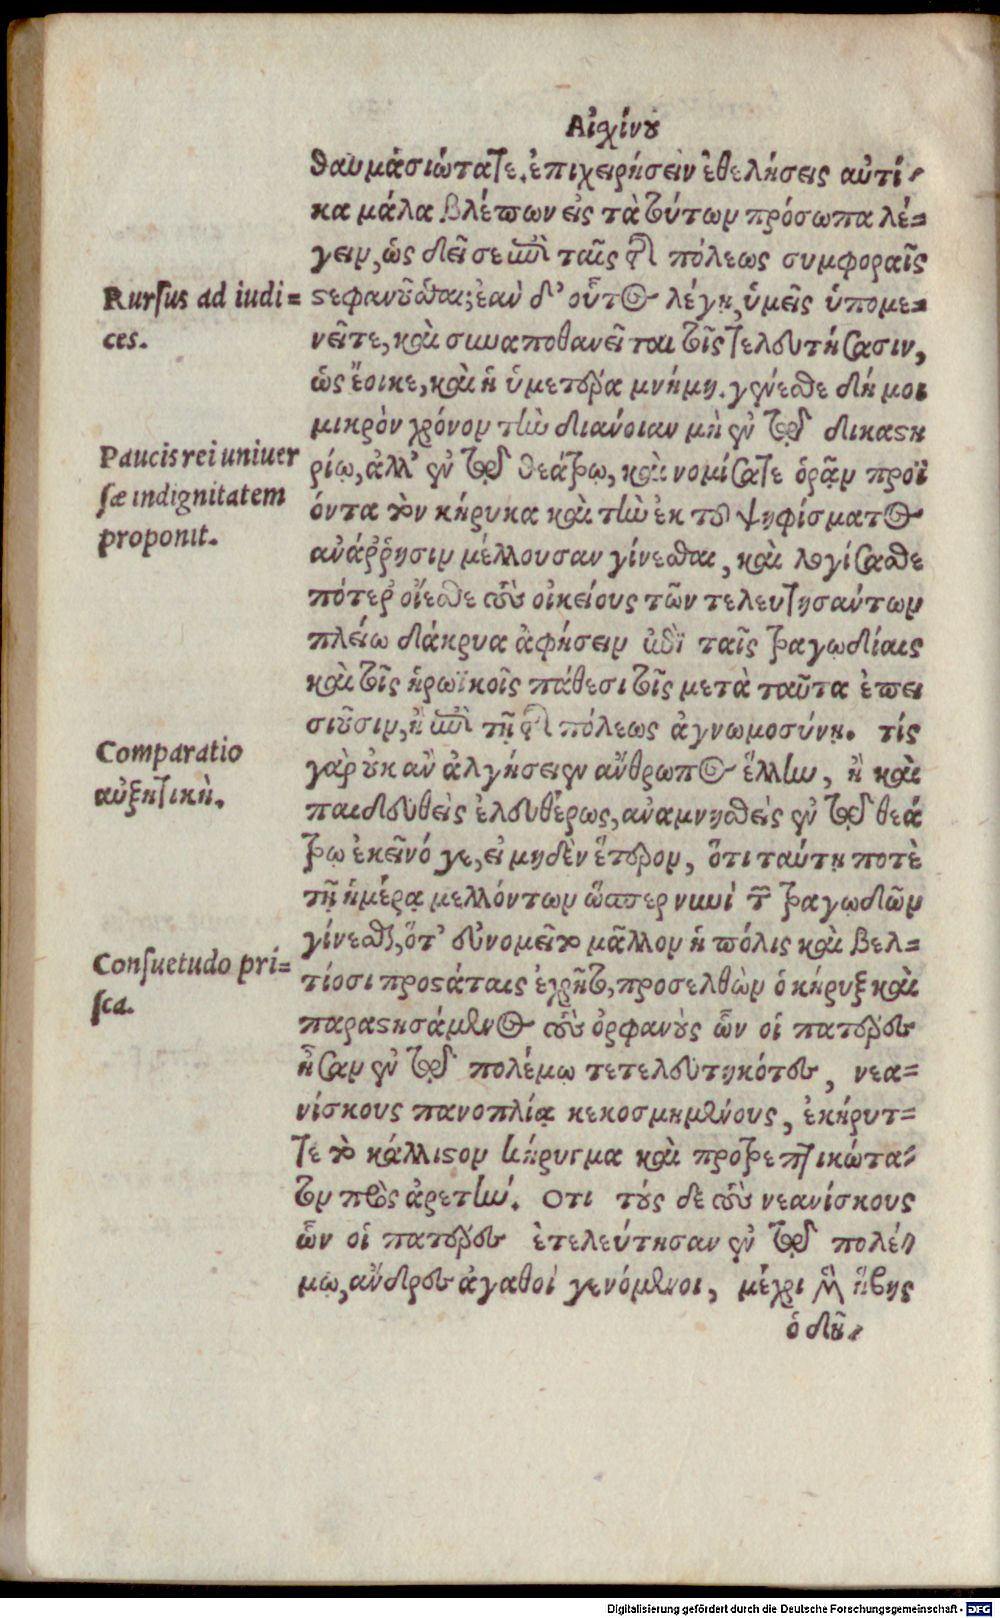 Αἰσχίνου
θαυμασιώτατε, ἐπιχειρήσειν ἐθελήσεις αὐτί-
κα μάλα βλέπων εἰς τὰ τούτων πρόσωπα λέ=
γειν, ὡς δεῖ σε ἐπὶ ταῖς τῆς πόλεως συμφοραῖς
στεφανοῦσθαι; ἐὰν δ' οὗτος λέγῃ, ὑμεῖς ὑπομε=
Rursus ad iudi=
ces.
νεῖτε, καὶ συναποθανεῖται τοῖς τελευτήσασιν,
ὡς ἔοικε, καὶ ἡ ὑμετέρα μνήμη. γένεσθε δή μοι
μικρὸν χρόνον τὴν διάνοιαν μὴ ἐν τῷ δικαστη
Paucis rei uniuer
sæ indignitatem
proponit.
ρίῳ, ἀλλ' ἐν τῷ θεάτρῳ, καὶ νομίσατε ὁρᾷν προϊ
όντα τὸν κήρυκα καὶ τὴν ἐκ τοῦ ψηφίσματος
ἀνάῤῥησιν μέλλουσαν γίνεσθαι, καὶ λογίσασθε
πότερ' οἴεσθε τοὺς οἰκείους τῶν τελευτησάντων
πλείω δάκρυα ἀφήσειν ἐπὶ ταῖς τραγῳδίαις
καὶ τοῖς ἡρωϊκοῖς πάθεσι τοῖς μετὰ ταῦτα ἐπει
σιοῦσιν, ἢ ἐπὶ τῇ τῆς πόλεως ἀγνωμοσύνῃ. τίς
Comparatio
αὐξητική.
γὰρ οὐκ ἂν ἀλγήσειεν ἄνθρωπος ἕλλην, ἢ καὶ
παιδευθεὶς ἐλευθέρως, ἀναμνησθεὶς ἐν τῷ θεά
τρῳ ἐκεῖνό γε, εἰ μηδὲν ἕτερον, ὅτι ταύτῃ ποτὲ
τῇ ἡμέρᾳ μελλόντων ὥσπερ νυνὶ τῶν τραγῳδῶν
γίνεσθαι, ὅτ' εὐνομεῖτο μᾶλλον ἡ πόλις καὶ βελ=
Consuetudo pri=
sca.
τίοσι προστάταις ἐχρῆτο, προσελθὼν ὁ κήρυξ καὶ
παραστησάμενος τοὺς ὀρφανοὺς ὧν οἱ πατέρες
ἦσαν ἐν τῷ πολέμῳ τετελευτηκότες, νεα=
νίσκους πανοπλίᾳ κεκοσμημένους, ἐκήρυτ=
τε τὸ κάλλιστον κήρυγμα καὶ προτρεπτικώτα-
τον πρὸς ἀρετήν. Ὅτι τούς δε τοὺς νεανίσκους
ὧν οἱ πατέρες ἐτελεύτησαν ἐν τῷ πολέ-
μῳ, ἄνδρες ἀγαθοὶ γενόμενοι, μέχρι μὲν ἥβης
ὁ δῆ-
Digitalisierung gefördert durch die Deutsche Forschungsgemeinschaft - DFG